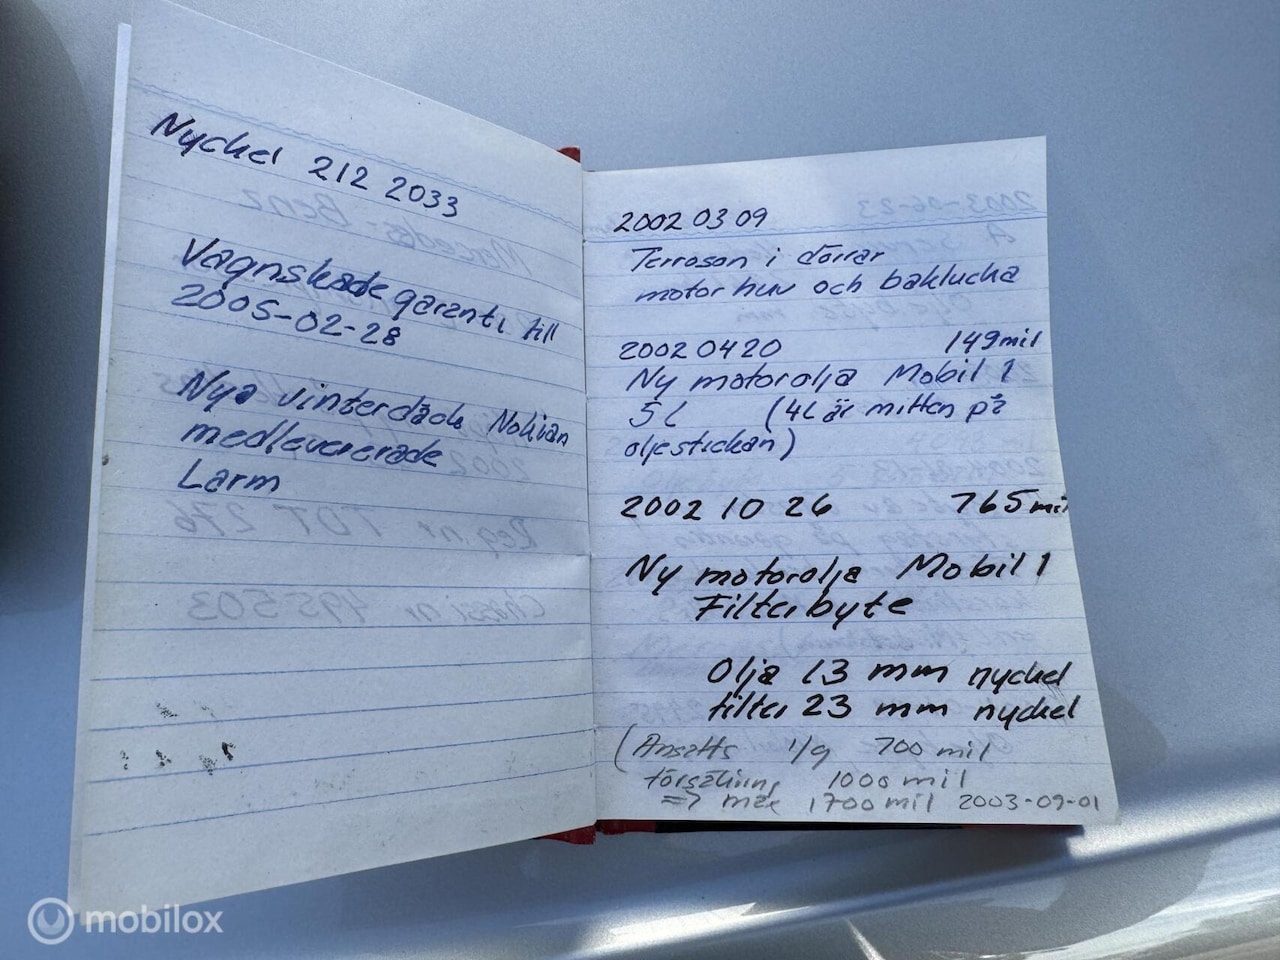 Nyckel 212 2033
Vagnskadegaranti till
2005-02-28
Nya vinterdäck Nokian
medlevererade
Larm
2002 03 09
Teroson i dörrar
motorhuv och baklucka
2002 04 20 149 mil
Ny motorolja Mobil 1
5 L (4L är mitten på
oljestickan)
2002 10 26 765 mil
Ny motorolja Mobil 1
Filterbyte
Olja 13 mm nyckel
filter 23 mm nyckel
(Ansatts 1/9 700 mil
försäkring 1000 mil
=> max 1700 mil 2003-09-01
Mercedes-Benz
2002
Reg.nr TUT 276
Chassi nr 495 503
2003-06-23
mobilox